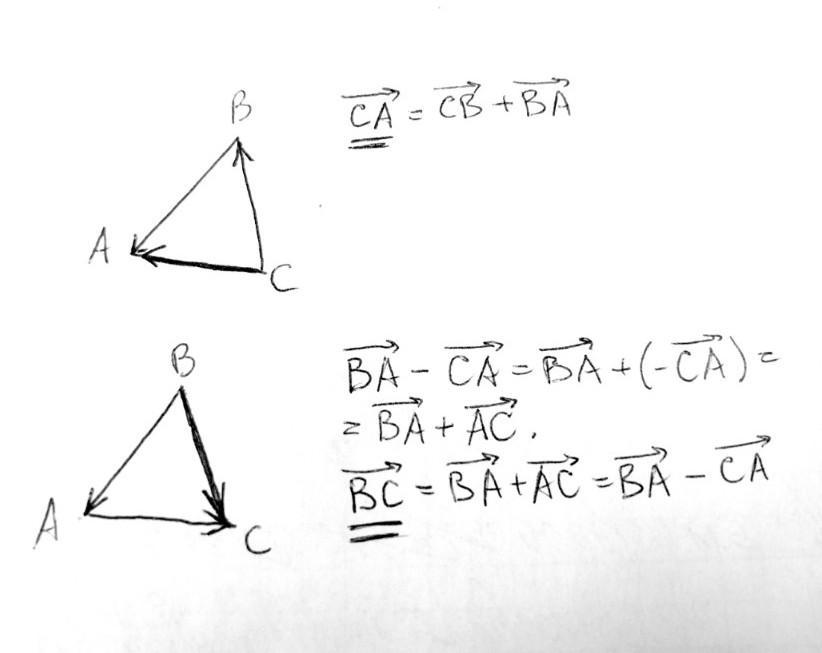 B
A
C
$\overrightarrow{CA} = \overrightarrow{CB} + \overrightarrow{BA}$
B
A
C
$\overrightarrow{BA} - \overrightarrow{CA} = \overrightarrow{BA} + (-\overrightarrow{CA}) =$
$= \overrightarrow{BA} + \overrightarrow{AC}.$
$\overrightarrow{BC} = \overrightarrow{BA} + \overrightarrow{AC} = \overrightarrow{BA} - \overrightarrow{CA}$